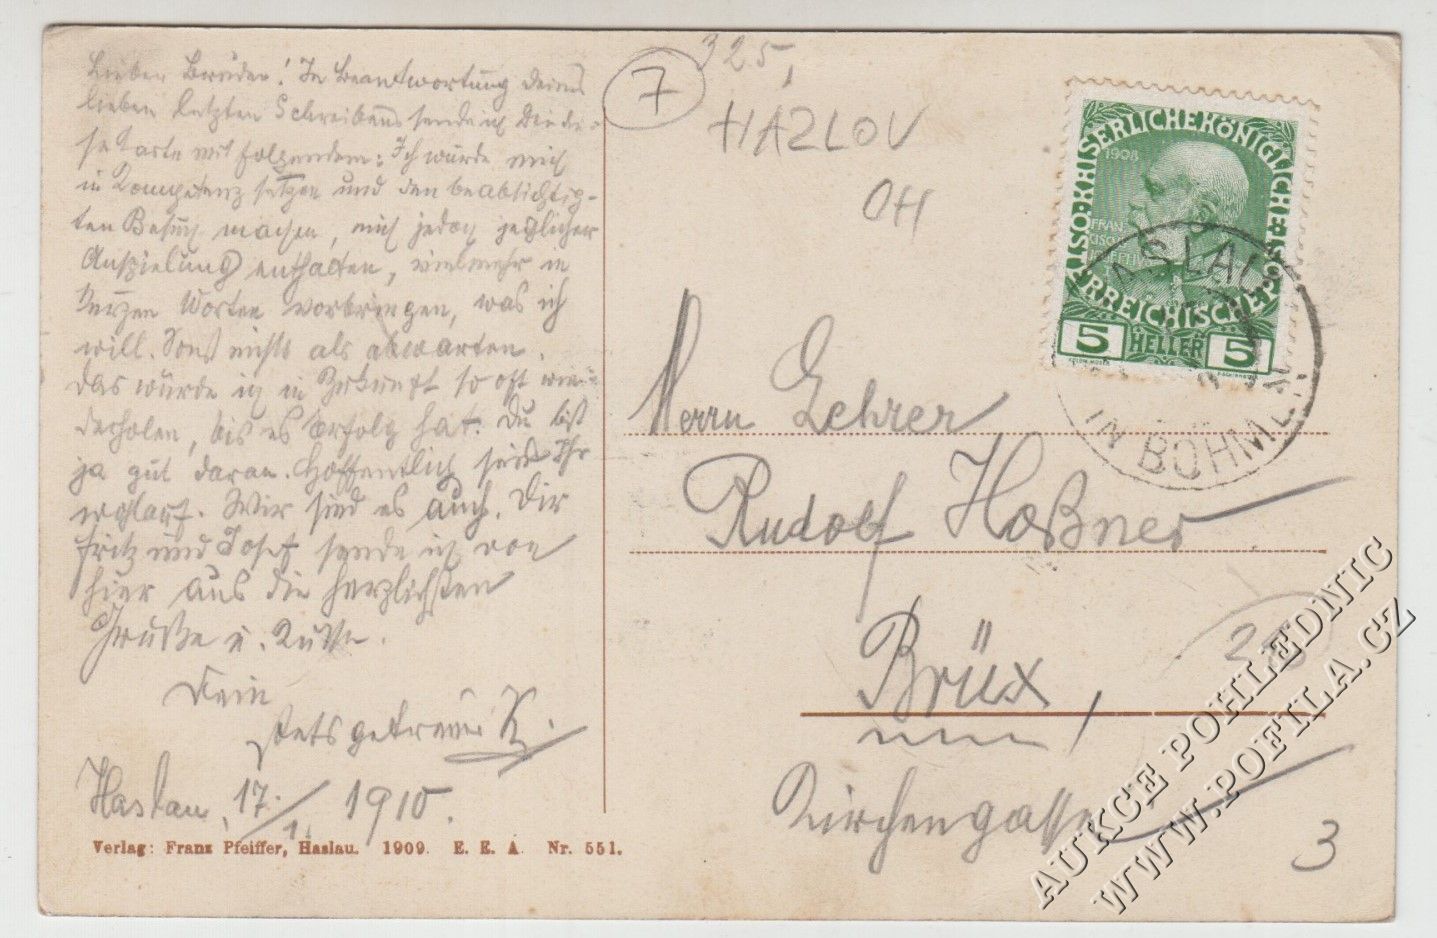 Lieber Bruder! In Beantwortung deines
lieben letzten Schreibens sende ich Dir die-
se Karte mit folgendem: Ich würde mich
in Kompetenz setzen und den beabsichtig-
ten Besuch machen, mich jedoch jeglicher
Anspielung enthalten, vielmehr in
kurzen Worten vorbringen, was ich
will. Sonst nichts als abwarten.
Das würde ich in Zukunft so oft wie-
derholen, bis es Erfolg hat. Du bist
ja gut daran. Hoffentlich seid Ihr
wohlauf. Wir sind es auch. Dir
Fritz und Josef sende ich von
hier aus die herzlichsten
Grüße u. Küsse.
Dein
stets getreuer
Haslau, 17./1. 1910.
Verlag: Franz Pfeiffer, Haslau. 1909. E. E. A. Nr. 551.
7
325,
HAZLOV
OH
KAISERLICHE KÖNIGLICHE
1908
ÖSTERREICHISCHE POST
5 HELLER 5
HASLAU
IN BÖHMEN
Herrn Lehrer
Rudolf Hoßner
Brüx,
Kirchengasse
35
3
AUKCE POHLEDNIC
WWW.POFILA.CZ